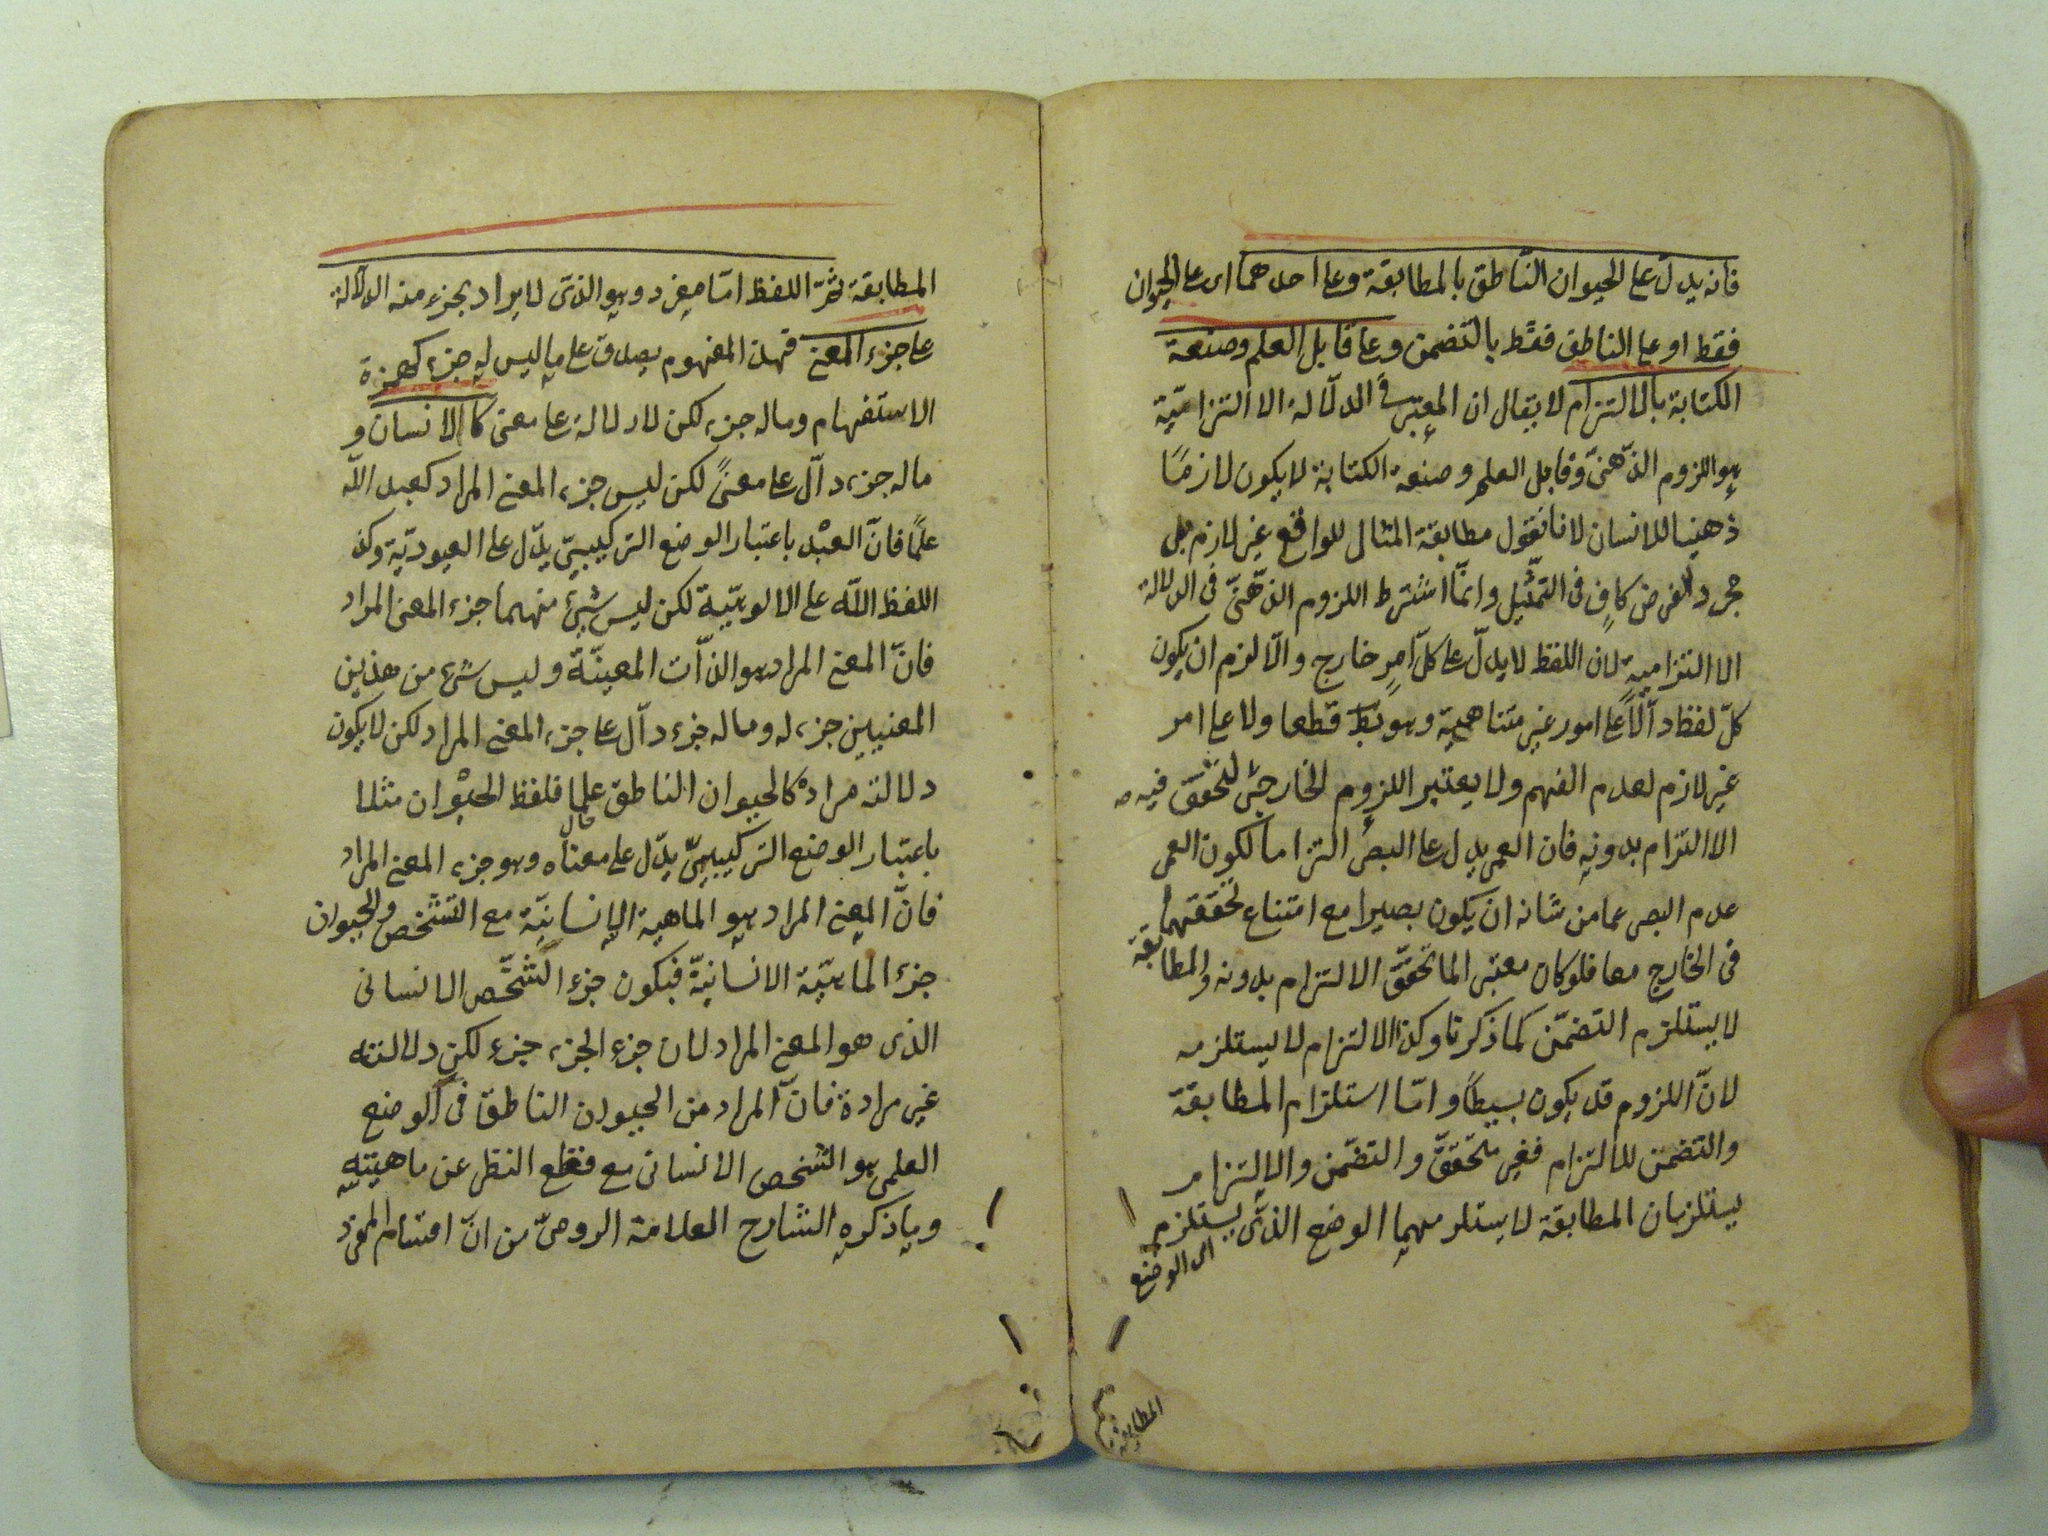 فانه يدل على الحيوان الناطق بالمطابقة وعلى احدهما اى على الحيوان
فقط او على الناطق فقط بالتضمن وعلى قابل العلم وصنعة
الكتابة بالالتزام لا يقال ان المعتبر فى الدلالة الالتزاميّة
هو اللزوم الذّهنىّ وقابل العلم وصنعة الكتابة لا يكون لازمًا
ذهنيا للانسان لانا نقول مطابقة المثال للواقع غير لازم بل
مجرد الفرض كافٍ فى التمثيل وانّما اشترط اللزوم الذّهنىّ فى الدلالة
الالتزامية لان اللفظ لا يدلّ على كلّ امرٍ خارج والّا لزم ان يكون
كلّ لفظ دالّاً على امور غير متناهية وهو بط قطعا ولا على امر
غير لازم لعدم الفهم ولا يعتبر اللزوم الخارجىّ لتحقق فيه
الالتزام بدونه فان العمى يدل على البصر التزاما لكون العمى
عدم البصر عما من شانه ان يكون بصيرا مع امتناع تحققهما
فى الخارج معا فلو كان معتبرا لما تحقّق الالتزام بدونه والمطابقة
لا يستلزم التضمّن كما ذكرنا وكذا الالتزام لا يستلزمه
لانّ اللزوم قد يكون بسيطًا وامّا استلزام المطابقة
والتضمن للالتزام فغير متحقّق والتضمّن والالتزام
يستلزمان المطابقة لاستلزامهما الوضع الذى يستلزم
اى الوضع
المطابقة
المطابقة ثمّ اللفظ امّا مفرد وهو الذى لا يراد بجزء منه الدلالة
على جزء المعنى فهذا المفهوم يصدق على ما ليس له جزء كهمزة
الاستفهام وماله جزء لكن لا دلالة على معنى كالانسان و
ماله جزء دآلّ على معنىً لكن ليس جزء المعنى المراد كعبد اللّه
علمًا فانّ العبْد باعتبار الوضع التركيبىّ يدّل على العبوديّة وكذا
اللفظ اللّه على الالوهيّة لكن ليس شىء منهما جزء المعنى المراد
فانّ المعنى المراد هو الذّات المعينّة وليس شىء من هذين
المعنيين جزء له وماله جزء دآلّ على جزء المعنى المراد لكن لا يكون
دلالته مرادة كالحيوان الناطق علما فلفظ الحيْوان مثلا
باعتبار الوضع التركيبىّ يدّل على معناه وهو جزء المعنى المراد
فانّ المعنى المراد هو الماهية الانسانيّة مع التشخص والحيوان
جزء الماهيّة الانسانيّة فيكون جزء الشّخص الانسانى
الذى هو المعنى المراد لان جزء الجزء جزء لكن دلالته
غير مرادة فانّ المراد من الحيوان الناطق فى الوضع
العلمى هو الشخص الانسانى مع قطع النظر عن ماهيّته
وما ذكره الشارح العلامة الرومىّ من انّ اقسام المفرد